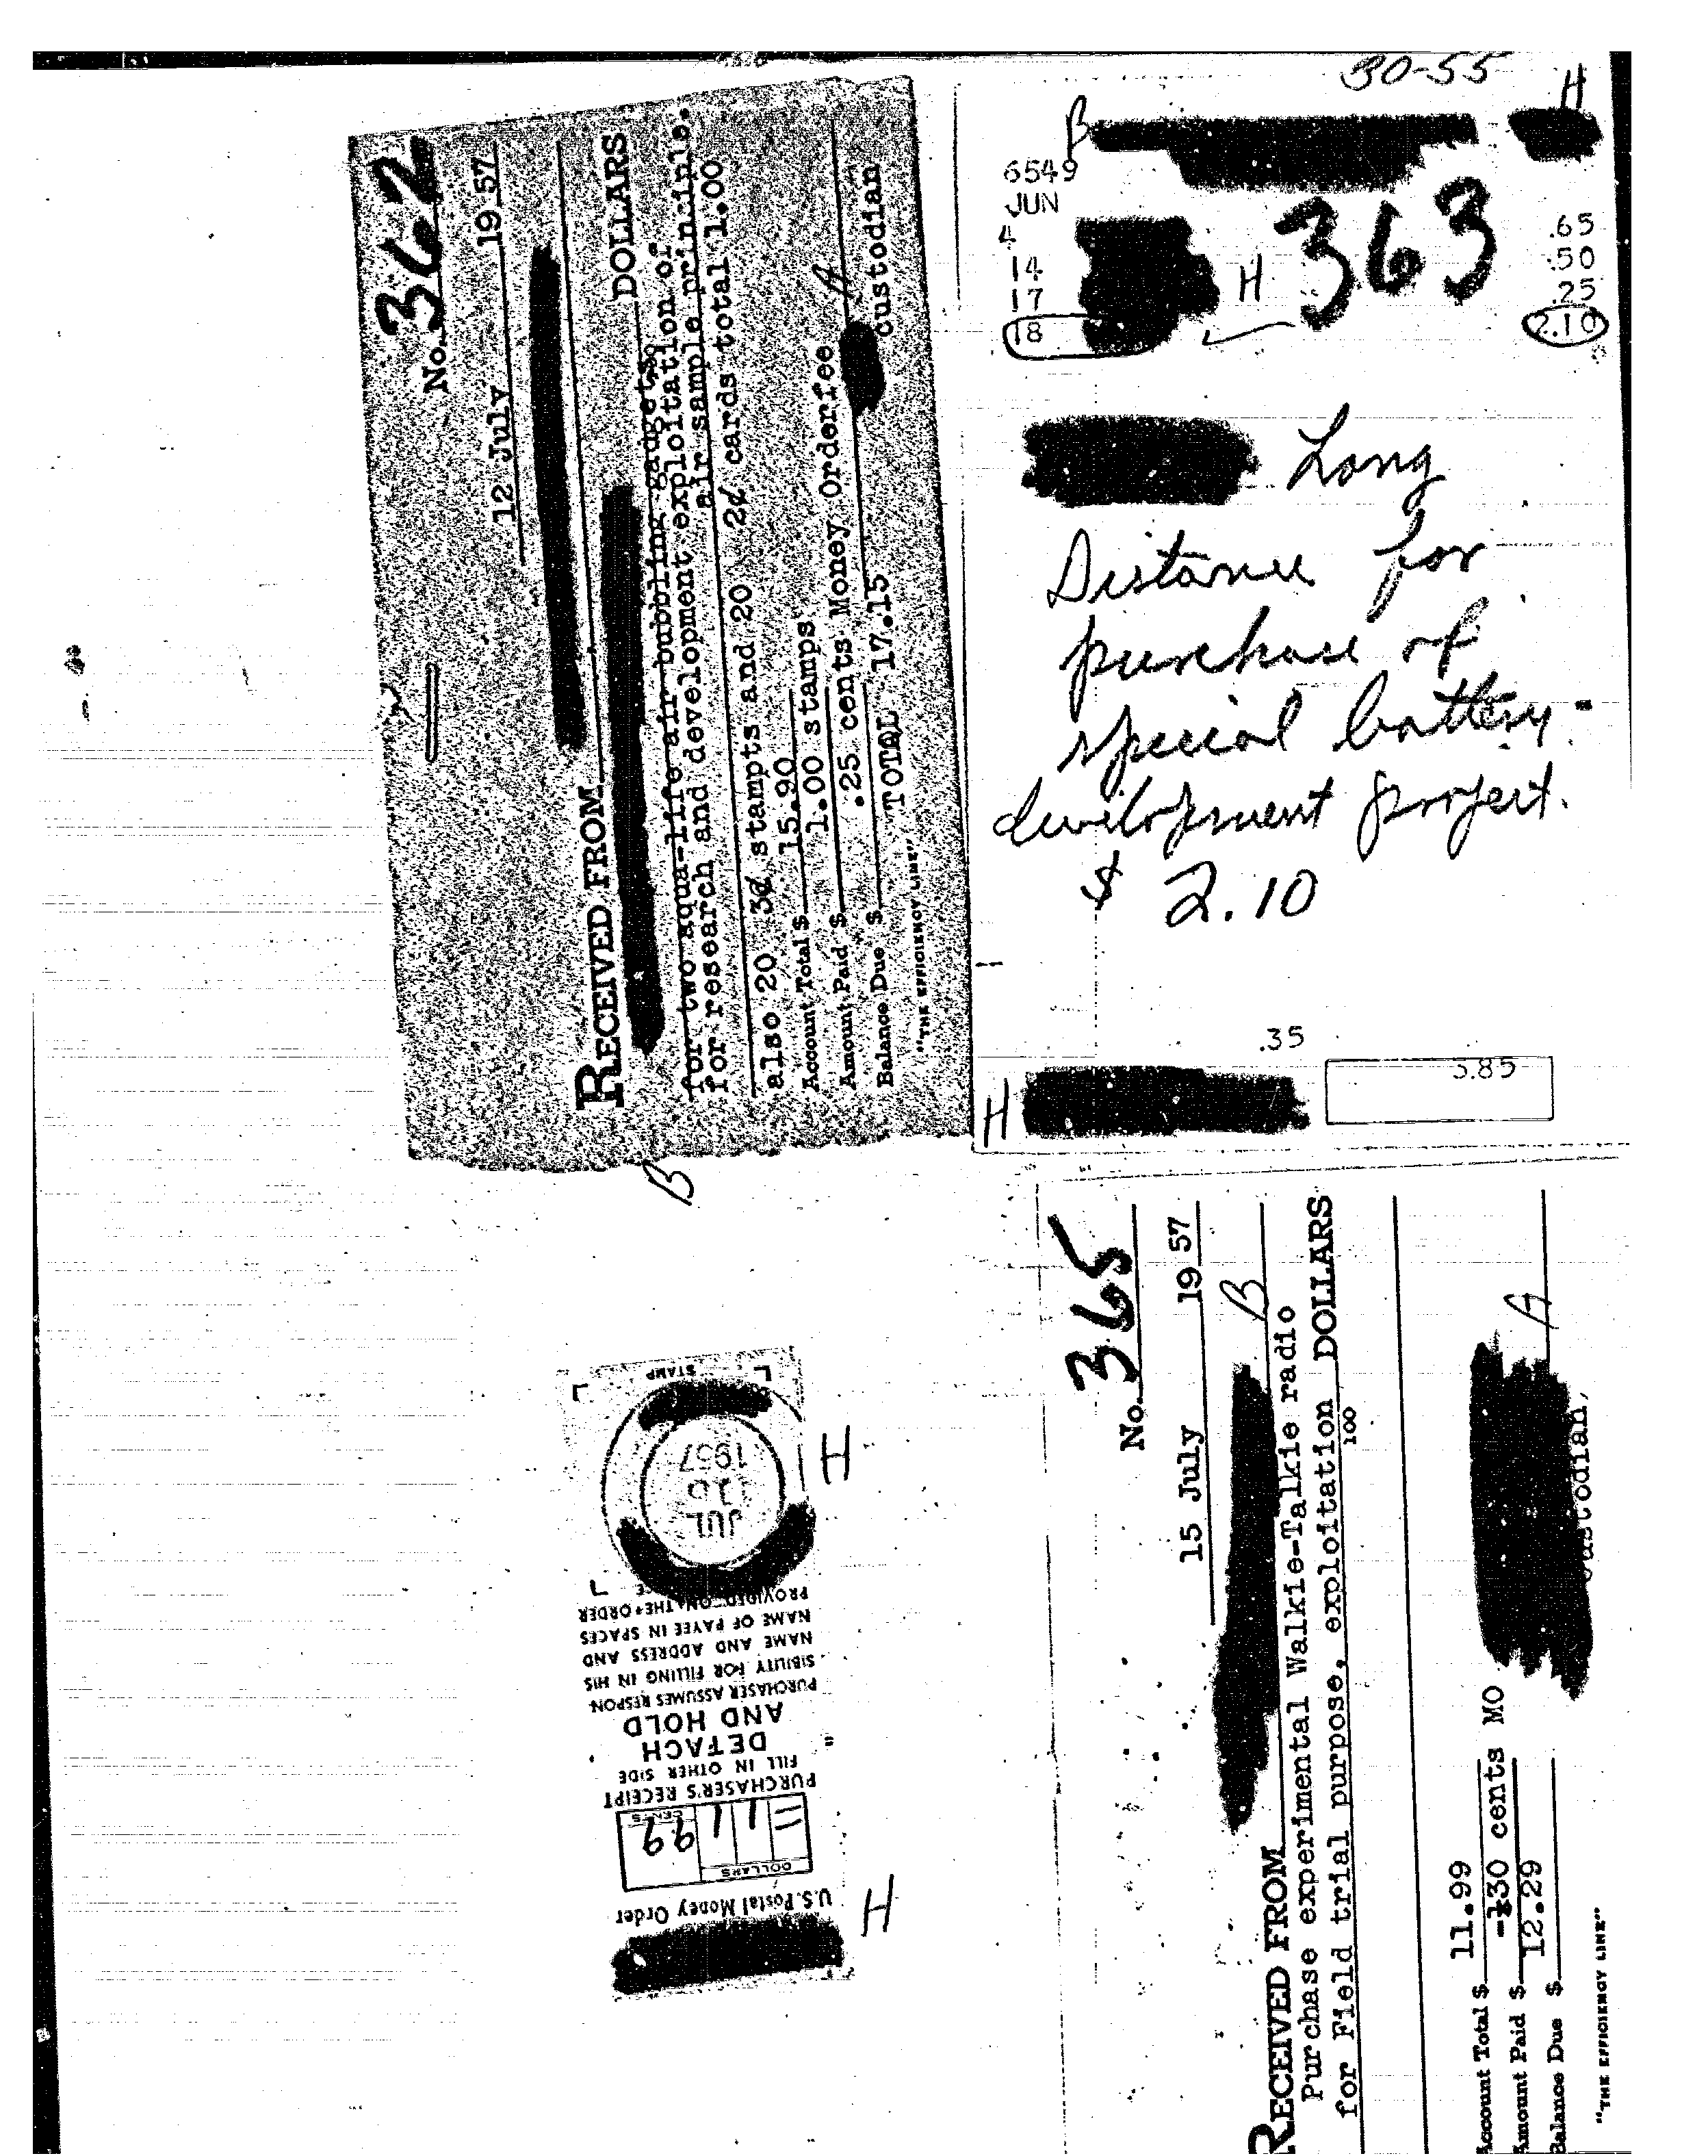 No. 362
12 July 19 57
RECEIVED FROM
DOLLARS
for two aqua-life air bubbling gadgets
for research and development exploitation of
air sample prinsinle.
also 20 3¢ stampts and 20 2¢ cards total 1.00
Account Total $ 15.90
1.00 stamps
Amount Paid $ .25 cents Money Orderfee A
Balance Due $ TOTQL 17.15 custodian
"THE EFFICIENCY LINE"
B
30-55
H
B
6549
JUN
4 .65
14 .50
17 H 363 .25
18 2.10
Long
Distance for
purchase of
special battery
development project.
$ 2.10
.35
H 3.85
U.S. Postal Money Order
H
DOLLARS CENTS
11 99
PURCHASER'S RECEIPT
FILL IN OTHER SIDE
DETACH
AND HOLD
PURCHASER ASSUMES RESPON-
SIBILITY FOR FILLING IN HIS
NAME AND ADDRESS AND
NAME OF PAYEE IN SPACES
PROVIDED ON THE ORDER
JUL
16
1957
STAMP
H
No. 365
15 July 19 57
B
RECEIVED FROM
Purchase experimental Walkie-Talkie radio
for Field trial purpose, exploitation DOLLARS
100
Account Total $ 11.99
30 cents MO
Amount Paid $ 12.29
Balance Due $
A
custodian,
"THE EFFICIENCY LINE"